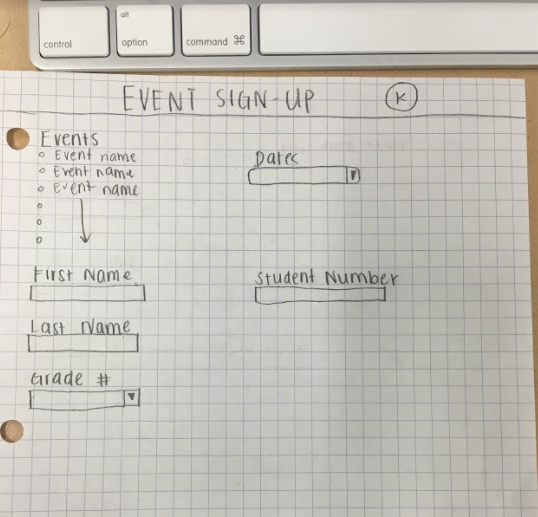 control
alt
option
command ⌘
EVENT SIGN-UP
K
Events
Event name
Event name
Event name
Dates
First Name
Student Number
Last Name
Grade #